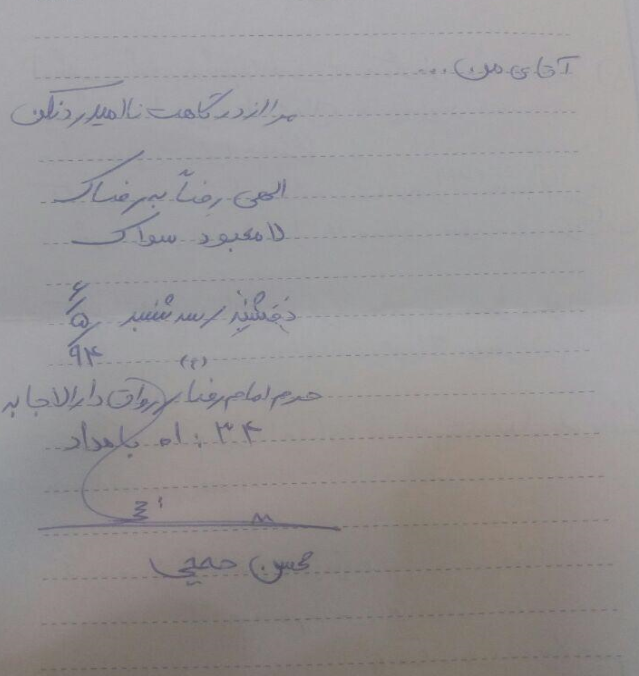 آقای من...
مرا از درگاهت ناامید رد نکن
الهی رضاً به رضاک
لا معبود سواک
پنجشنبه / سه شنبه ۶/۵/۹۴
حرم امام رضا (ع) / رواق دارالاجابه
۳۴ : ۰۱ بامداد
محسن حججی